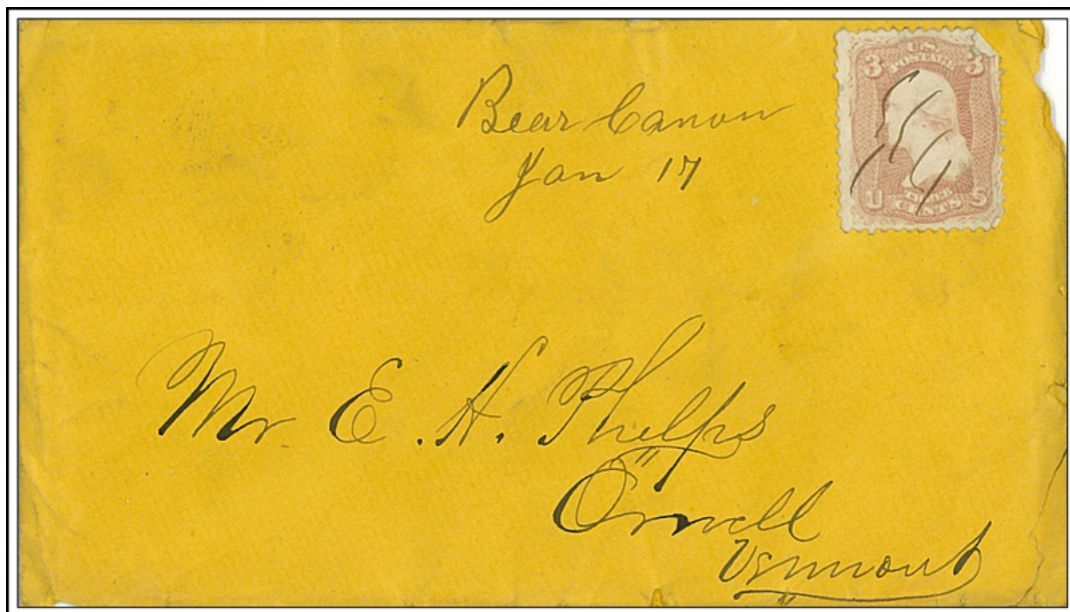 Bear Canon
Jan 17
3 U.S. 3
POSTAGE
U THREE S
CENTS
Mr E. H. Phelps
Orwell
Vermont